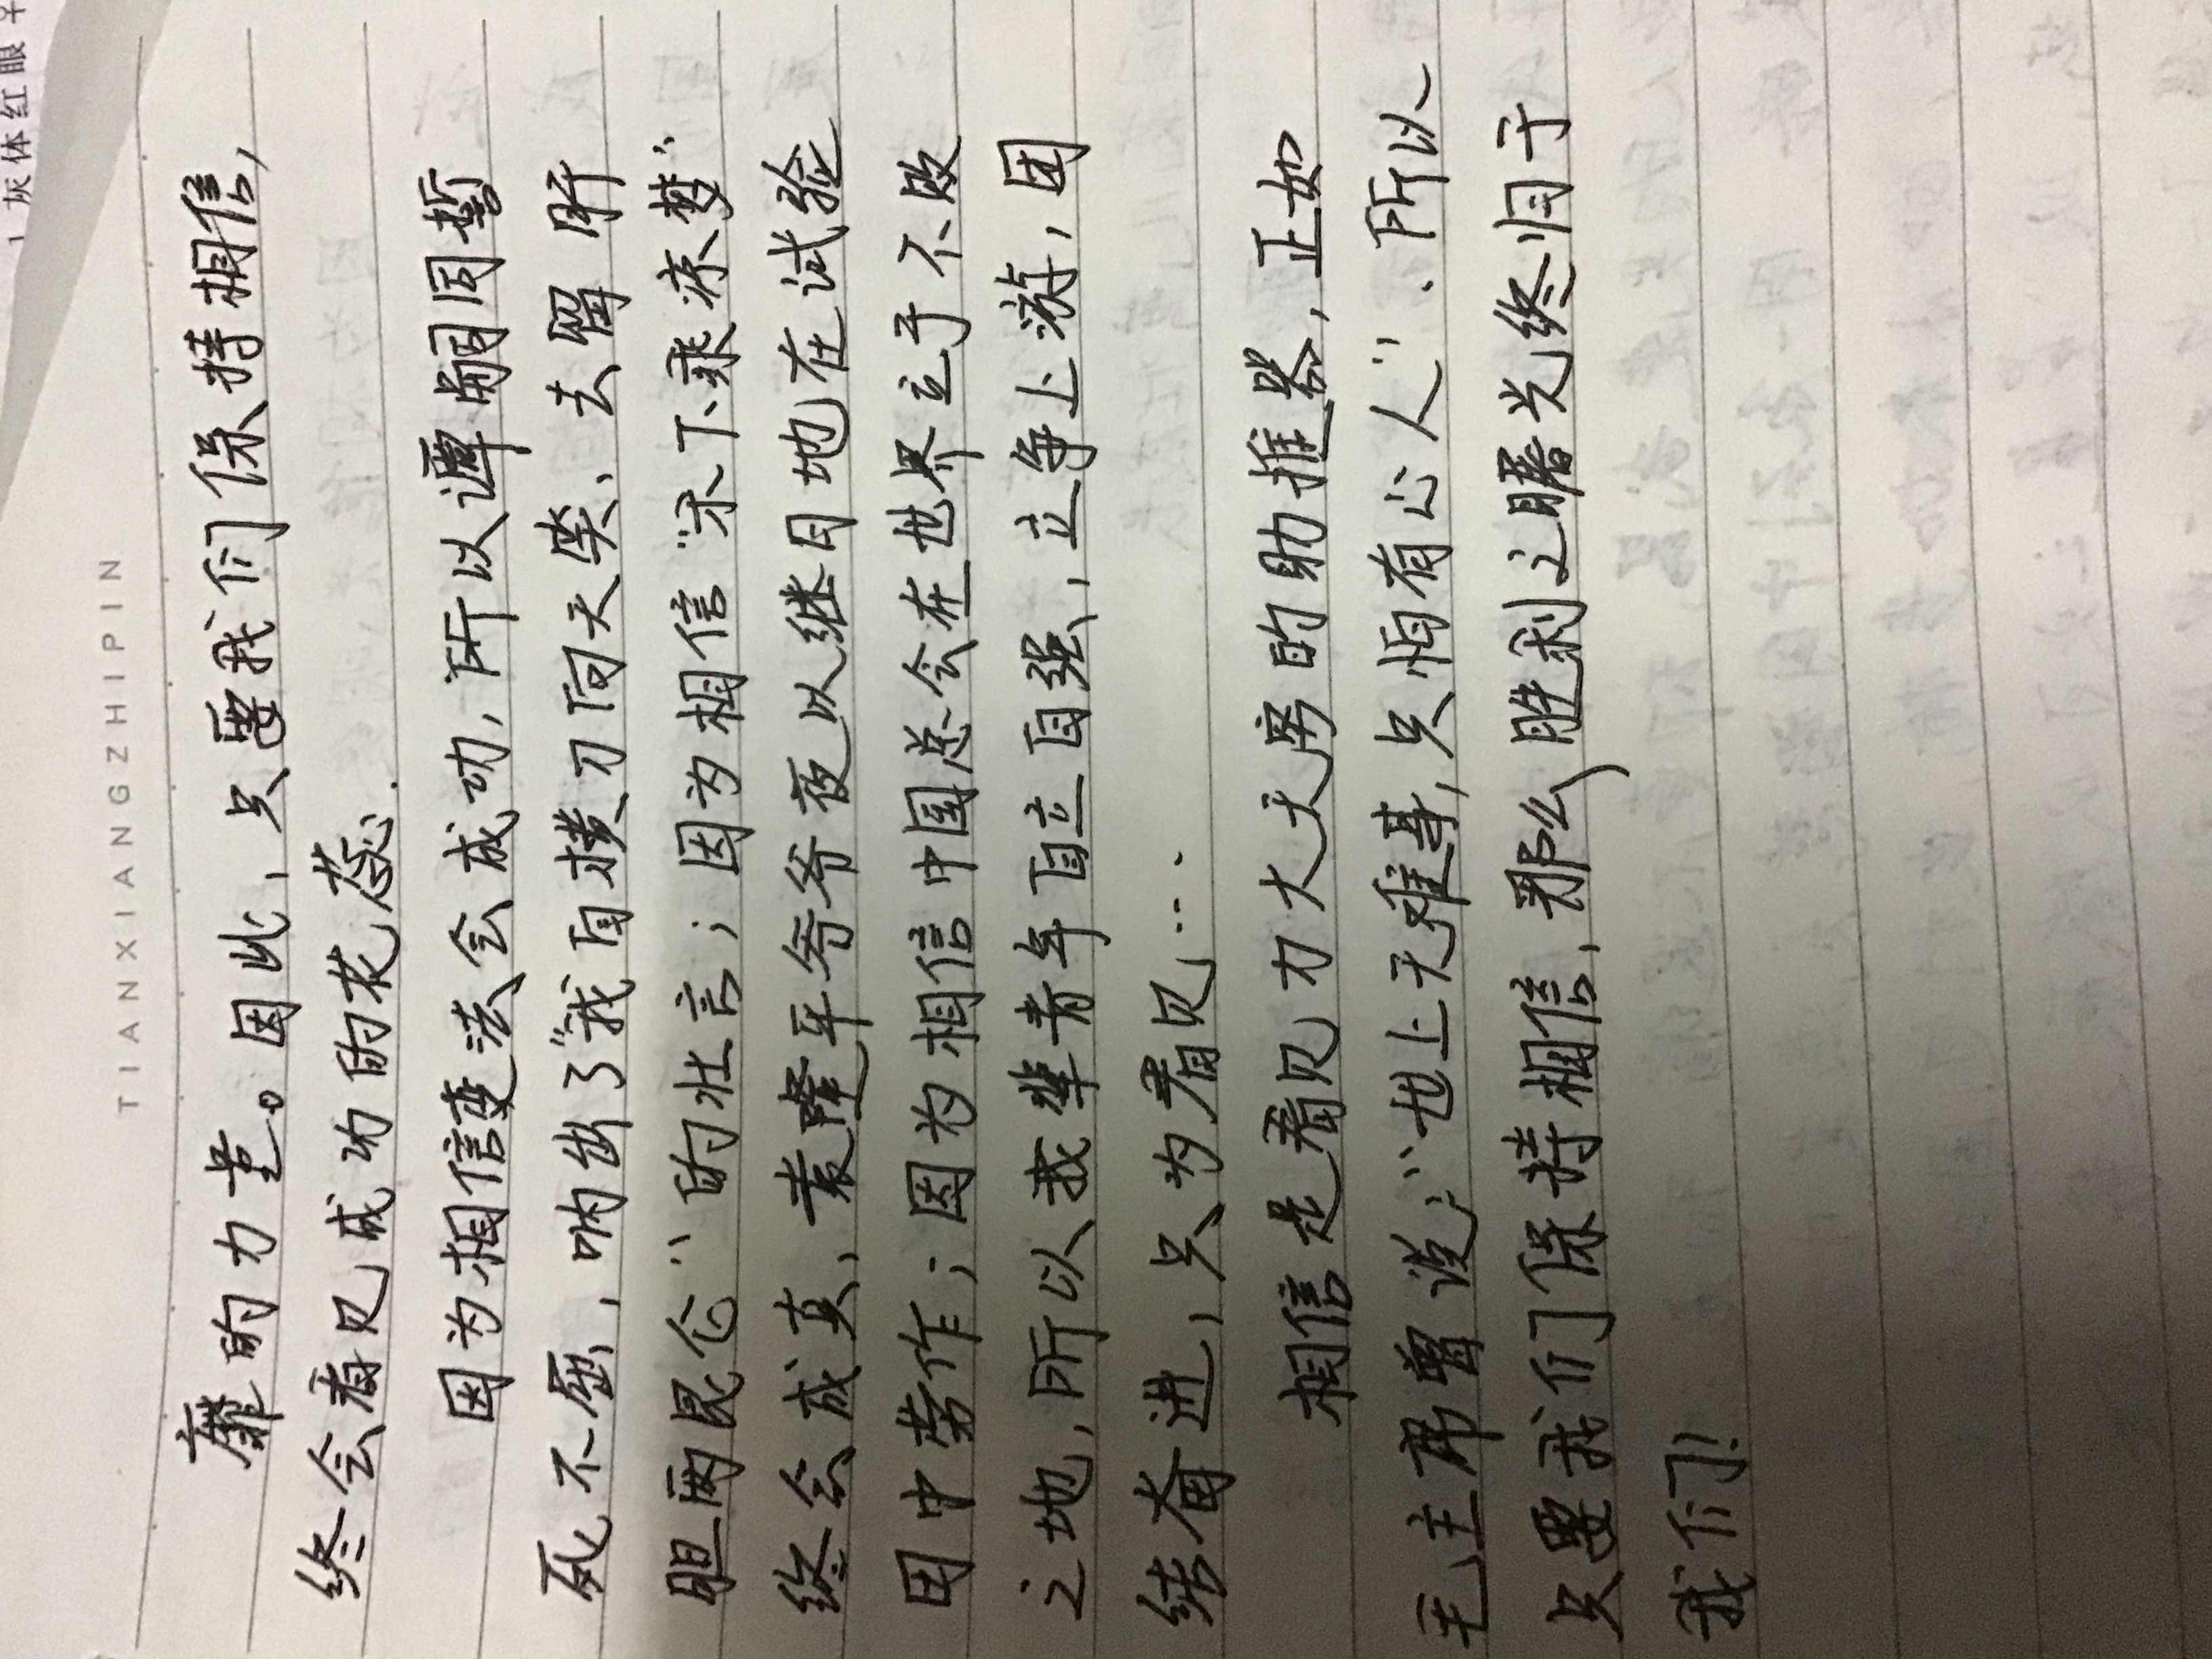 灰体红眼
TIANXIANGZHIPIN
靡的力量。因此，只要我们保持相信，
终会看见成功的花蕊.
因为相信变法会成功，所以谭嗣同誓
死不屈，呐出了“我自横刀向天笑、去留肝
胆两昆仑”的壮言；因为相信“禾下乘凉梦”
终会成真、袁隆平爷爷夜以继日地在试验
田中劳作；因为相信中国总会在世界立于不败
之地，所以我辈青年自立自强、立争上游，团
结奋进，只为看见…
相信是看见力大无穷的助推器，正如
毛主席曾说，“世上无难事，只怕有心人”.所以
只要我们保持相信、那么胜利之曙光终归于
我们！